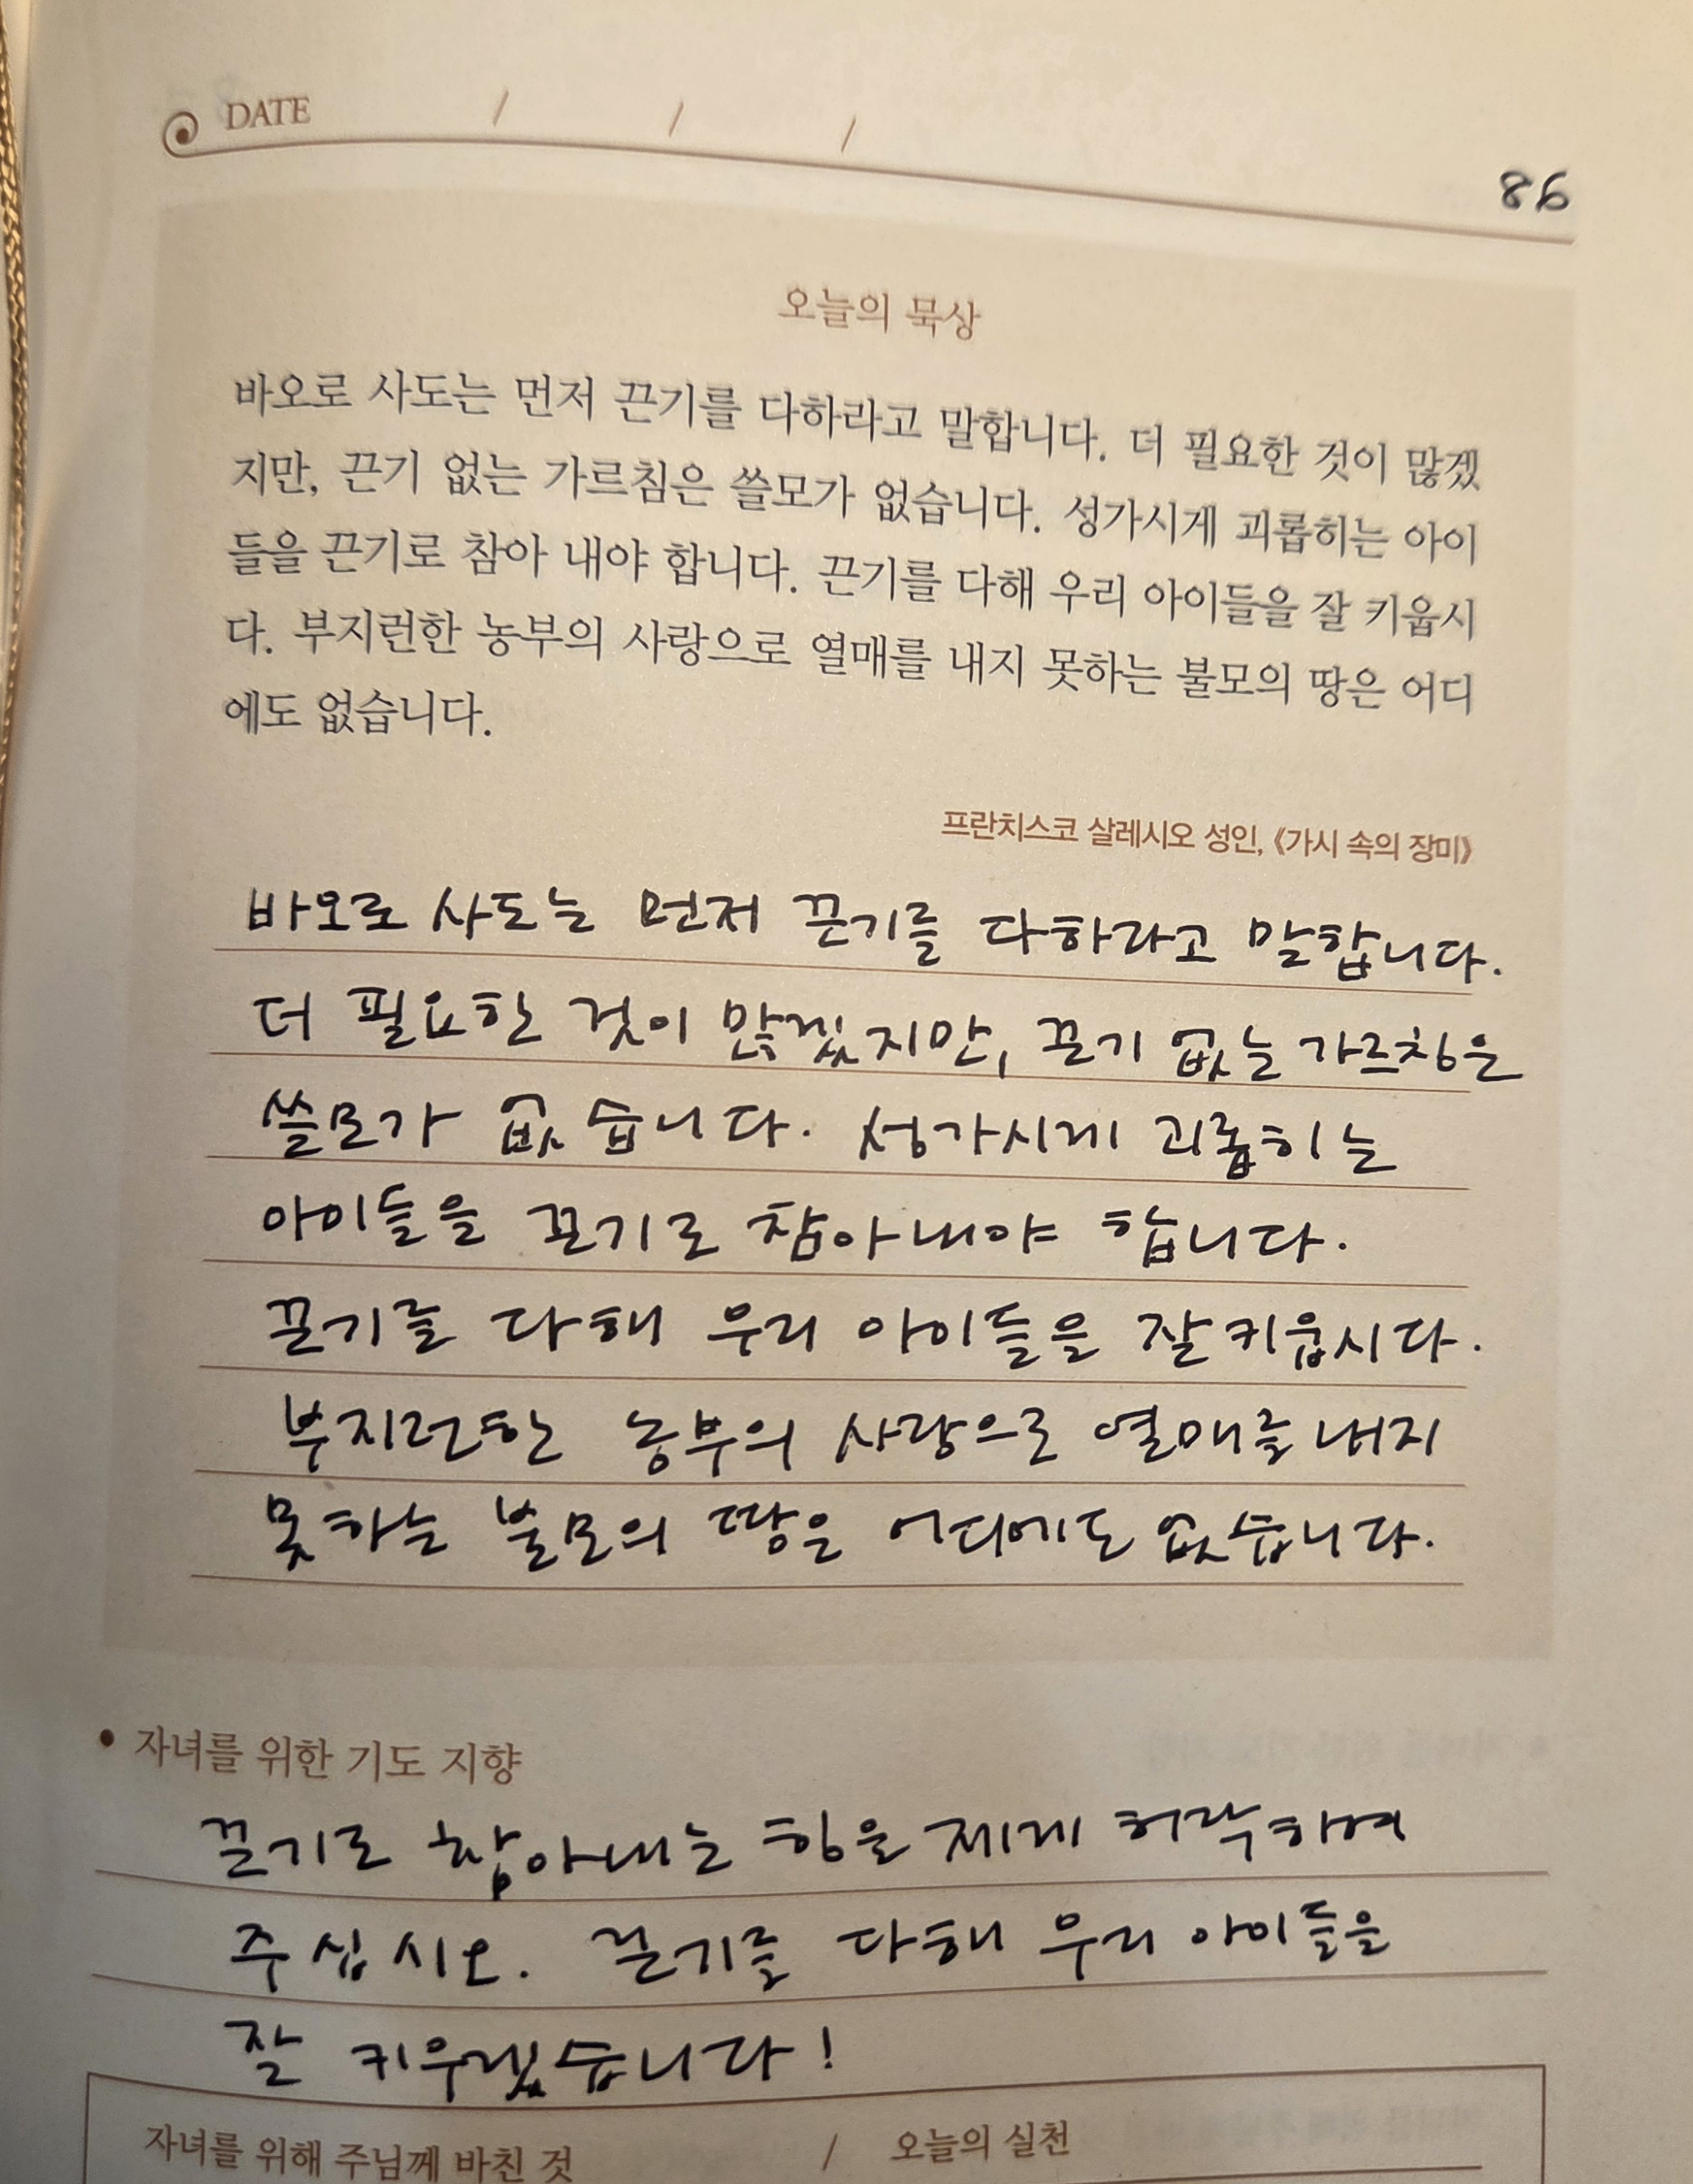 DATE / / /
98
오늘의 묵상
바오로 사도는 먼저 끈기를 다하라고 말합니다. 더 필요한 것이 많겠
지만, 끈기 없는 가르침은 쓸모가 없습니다. 성가시게 괴롭히는 아이
들을 끈기로 참아 내야 합니다. 끈기를 다해 우리 아이들을 잘 키웁시
다. 부지런한 농부의 사랑으로 열매를 내지 못하는 불모의 땅은 어디
에도 없습니다.
프란치스코 살레시오 성인, 《가시 속의 장미》
바오로 사도는 먼저 끈기를 다하라고 말합니다.
더 필요한 것이 많겠지만, 끈기 없는 가르침은
쓸모가 없습니다. 성가시게 괴롭히는
아이들을 끈기로 참아내야 합니다.
끈기를 다해 우리 아이들을 잘키웁시다.
부지런한 농부의 사랑으로 열매를 내지
못하는 불모의 땅은 어디에도 없습니다.
• 자녀를 위한 기도 지향
끈기로 참아내는 힘을 제게 허락하여
주십시오. 끈기를 다해 우리 아이들을
잘 키우겠습니다!
자녀를 위해 주님께 바친 것 / 오늘의 실천